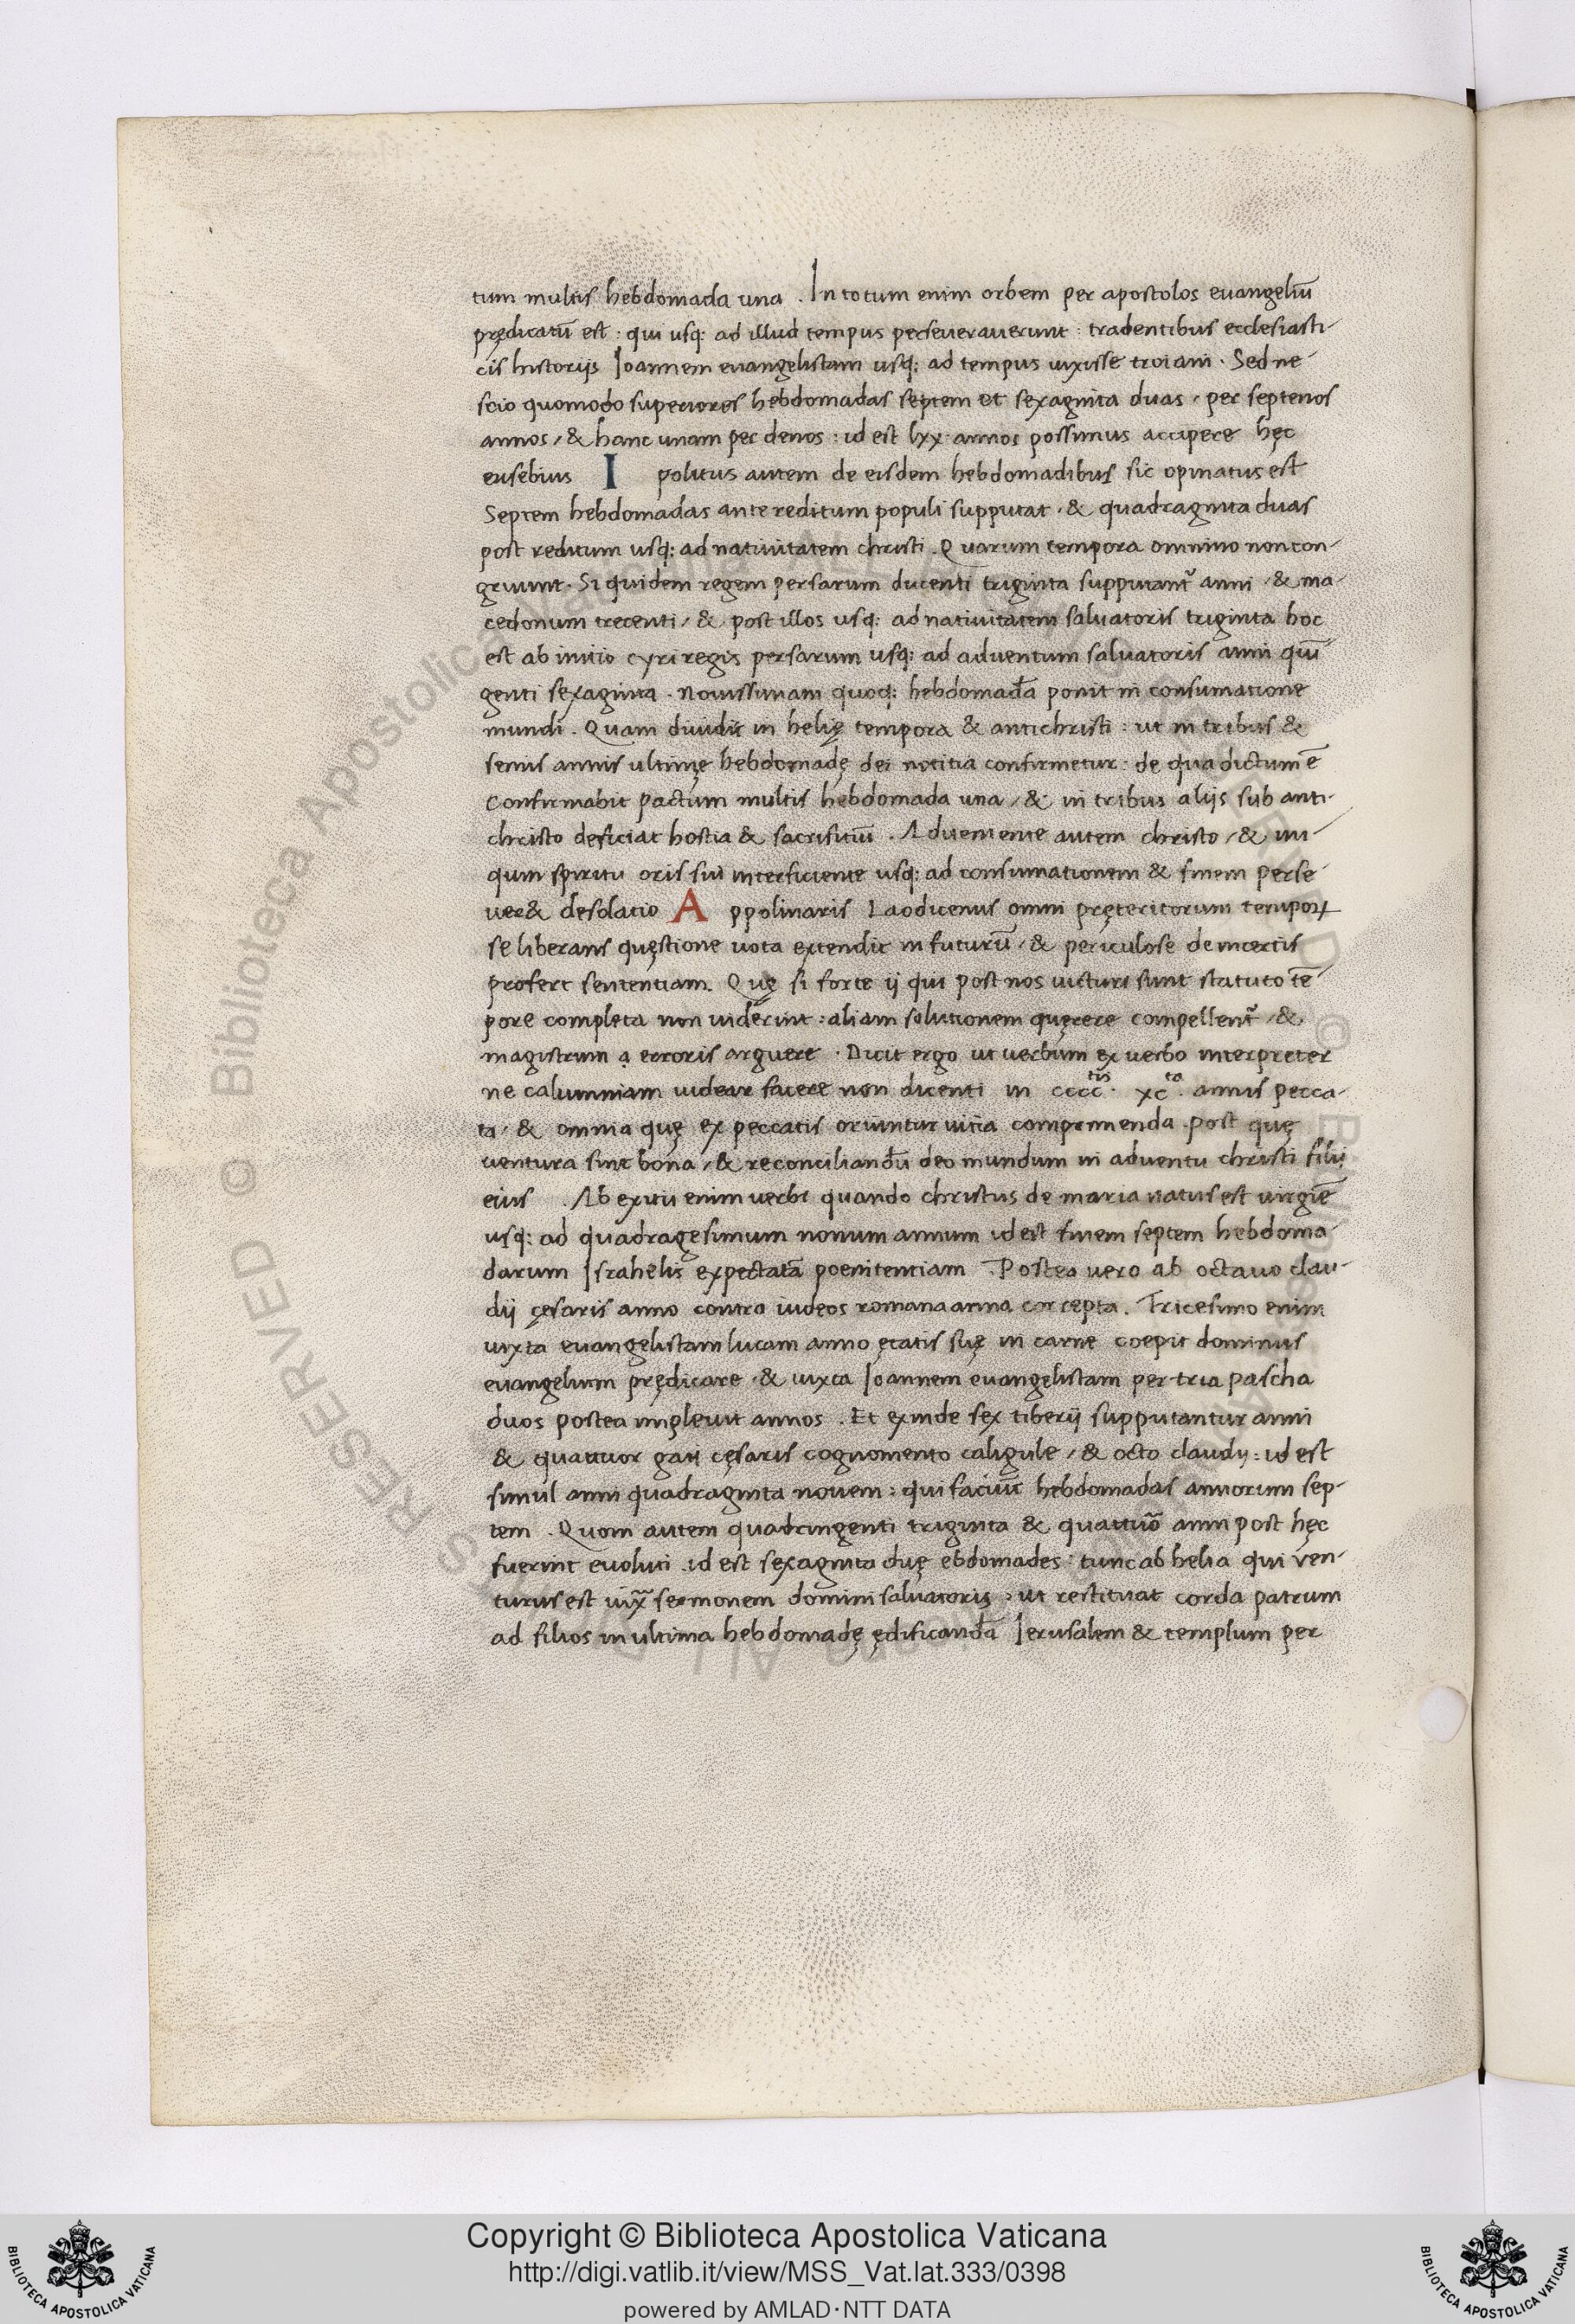 tum multis hebdomada una . In totum enim orbem per apostolos euangeliū
prędicatū est : qui usq: ad illud tempus perseuerauerunt : tradentibus ecclesiasti-
cis historijs Ioannem euangelistam usq: ad tempus uixisse troiani . Sed ne-
scio quomodo superiores hebdomadas septem et sexaginta duas / per septenos
annos / & hanc unam per denos : id est lxx annos possimus accipere hęc
eusebius I politus autem de eisdem hebdomadibus sic opinatus est
Septem hebdomadas ante reditum populi supputat . & quadraginta duas
post reditum usq: ad natiuitatem christi . Quarum tempora omnino non con-
gruunt . Si quidem regem persarum ducenti triginta supputant᷑ anni / & ma-
cedonum trecenti / & post illos usq: ad natiuitatem saluatoris triginta hoc
est ab initio cyri regis persarum usq: ad aduentum saluatoris anni quī
genti sexaginta . Nouissimam quoq: hebdomadā ponit in consumatione
mundi . Quam diuidit in helię tempora & antichristi : ut in tribus &
semis annis ultimę hebdomadę dei notitia confirmetur : de qua dictum ē
Confirmabit pactum multis hebdomada una / & in tribus alijs sub anti-
christo deficiat hostia & sacrifitiū . Adueniente autem christo / & ini-
qum spiritu oris sui interficiente usq: ad consumationem & finem perse-
uer& desolatio A ppolinaris Laodicenus omni pręteritorum temporꝝ
se liberans quęstione uota extendit in futurū / & periculose de incertis
profert sententiam . Quę si forte ij qui post nos uicturi sunt statuto tē-
pore completa non uiderint : aliam solutionem quęrere compellent᷑ / &
magistrum ą erroris arguere . Dicit ergo ut uerbum ex uerbo interpreter
ne calumniam uidear facere non dicenti in cccc tis . xc to . annis pecca-
ta / & omnia quę ex peccatis oriuntur uitia comprimenda . post quę
uentura sint bona / & reconciliandū deo mundum in aduentu christi filij
eius . Ab exitu enim uerbi quando christus de maria natus est uirgiē
usq: ad quadragesimum nonum annum id est finem septem hebdoma-
darum Israhelis expectatā poenitentiam . Postea uero ab octauo clau-
dij cęsaris anno contra iudeos romana arma correpta . Tricesimo enim
iuxta euangelistam lucam anno ętatis suę in carne coepit dominus
euangelium prędicare . & iuxta Ioannem euangelistam per tria pascha
duos postea impleuit annos . Et exinde sex tiberij supputantur anni
& quattuor gaij cęsaris cognomento caligule / & octo claudij : id est
simul anni quadraginta nouem : qui faciūt hebdomadas annorum sep-
tem . Quom autem quadringenti triginta & quattuō anni post hęc
fuerint euoluti . id est sexaginta duę ebdomades : tunc ab helia qui ven-
turus est iux̄ sermonem domini saluatoris . ut restituat corda patrum
ad filios in ultima hebdomadę ędificandā Ierusalem & templum per
Copyright © Biblioteca Apostolica Vaticana
http://digi.vatlib.it/view/MSS_Vat.lat.333/0398
powered by AMLAD·NTT DATA
BIBLIOTECA APOSTOLICA VATICANA
BIBLIOTECA APOSTOLICA VATICANA